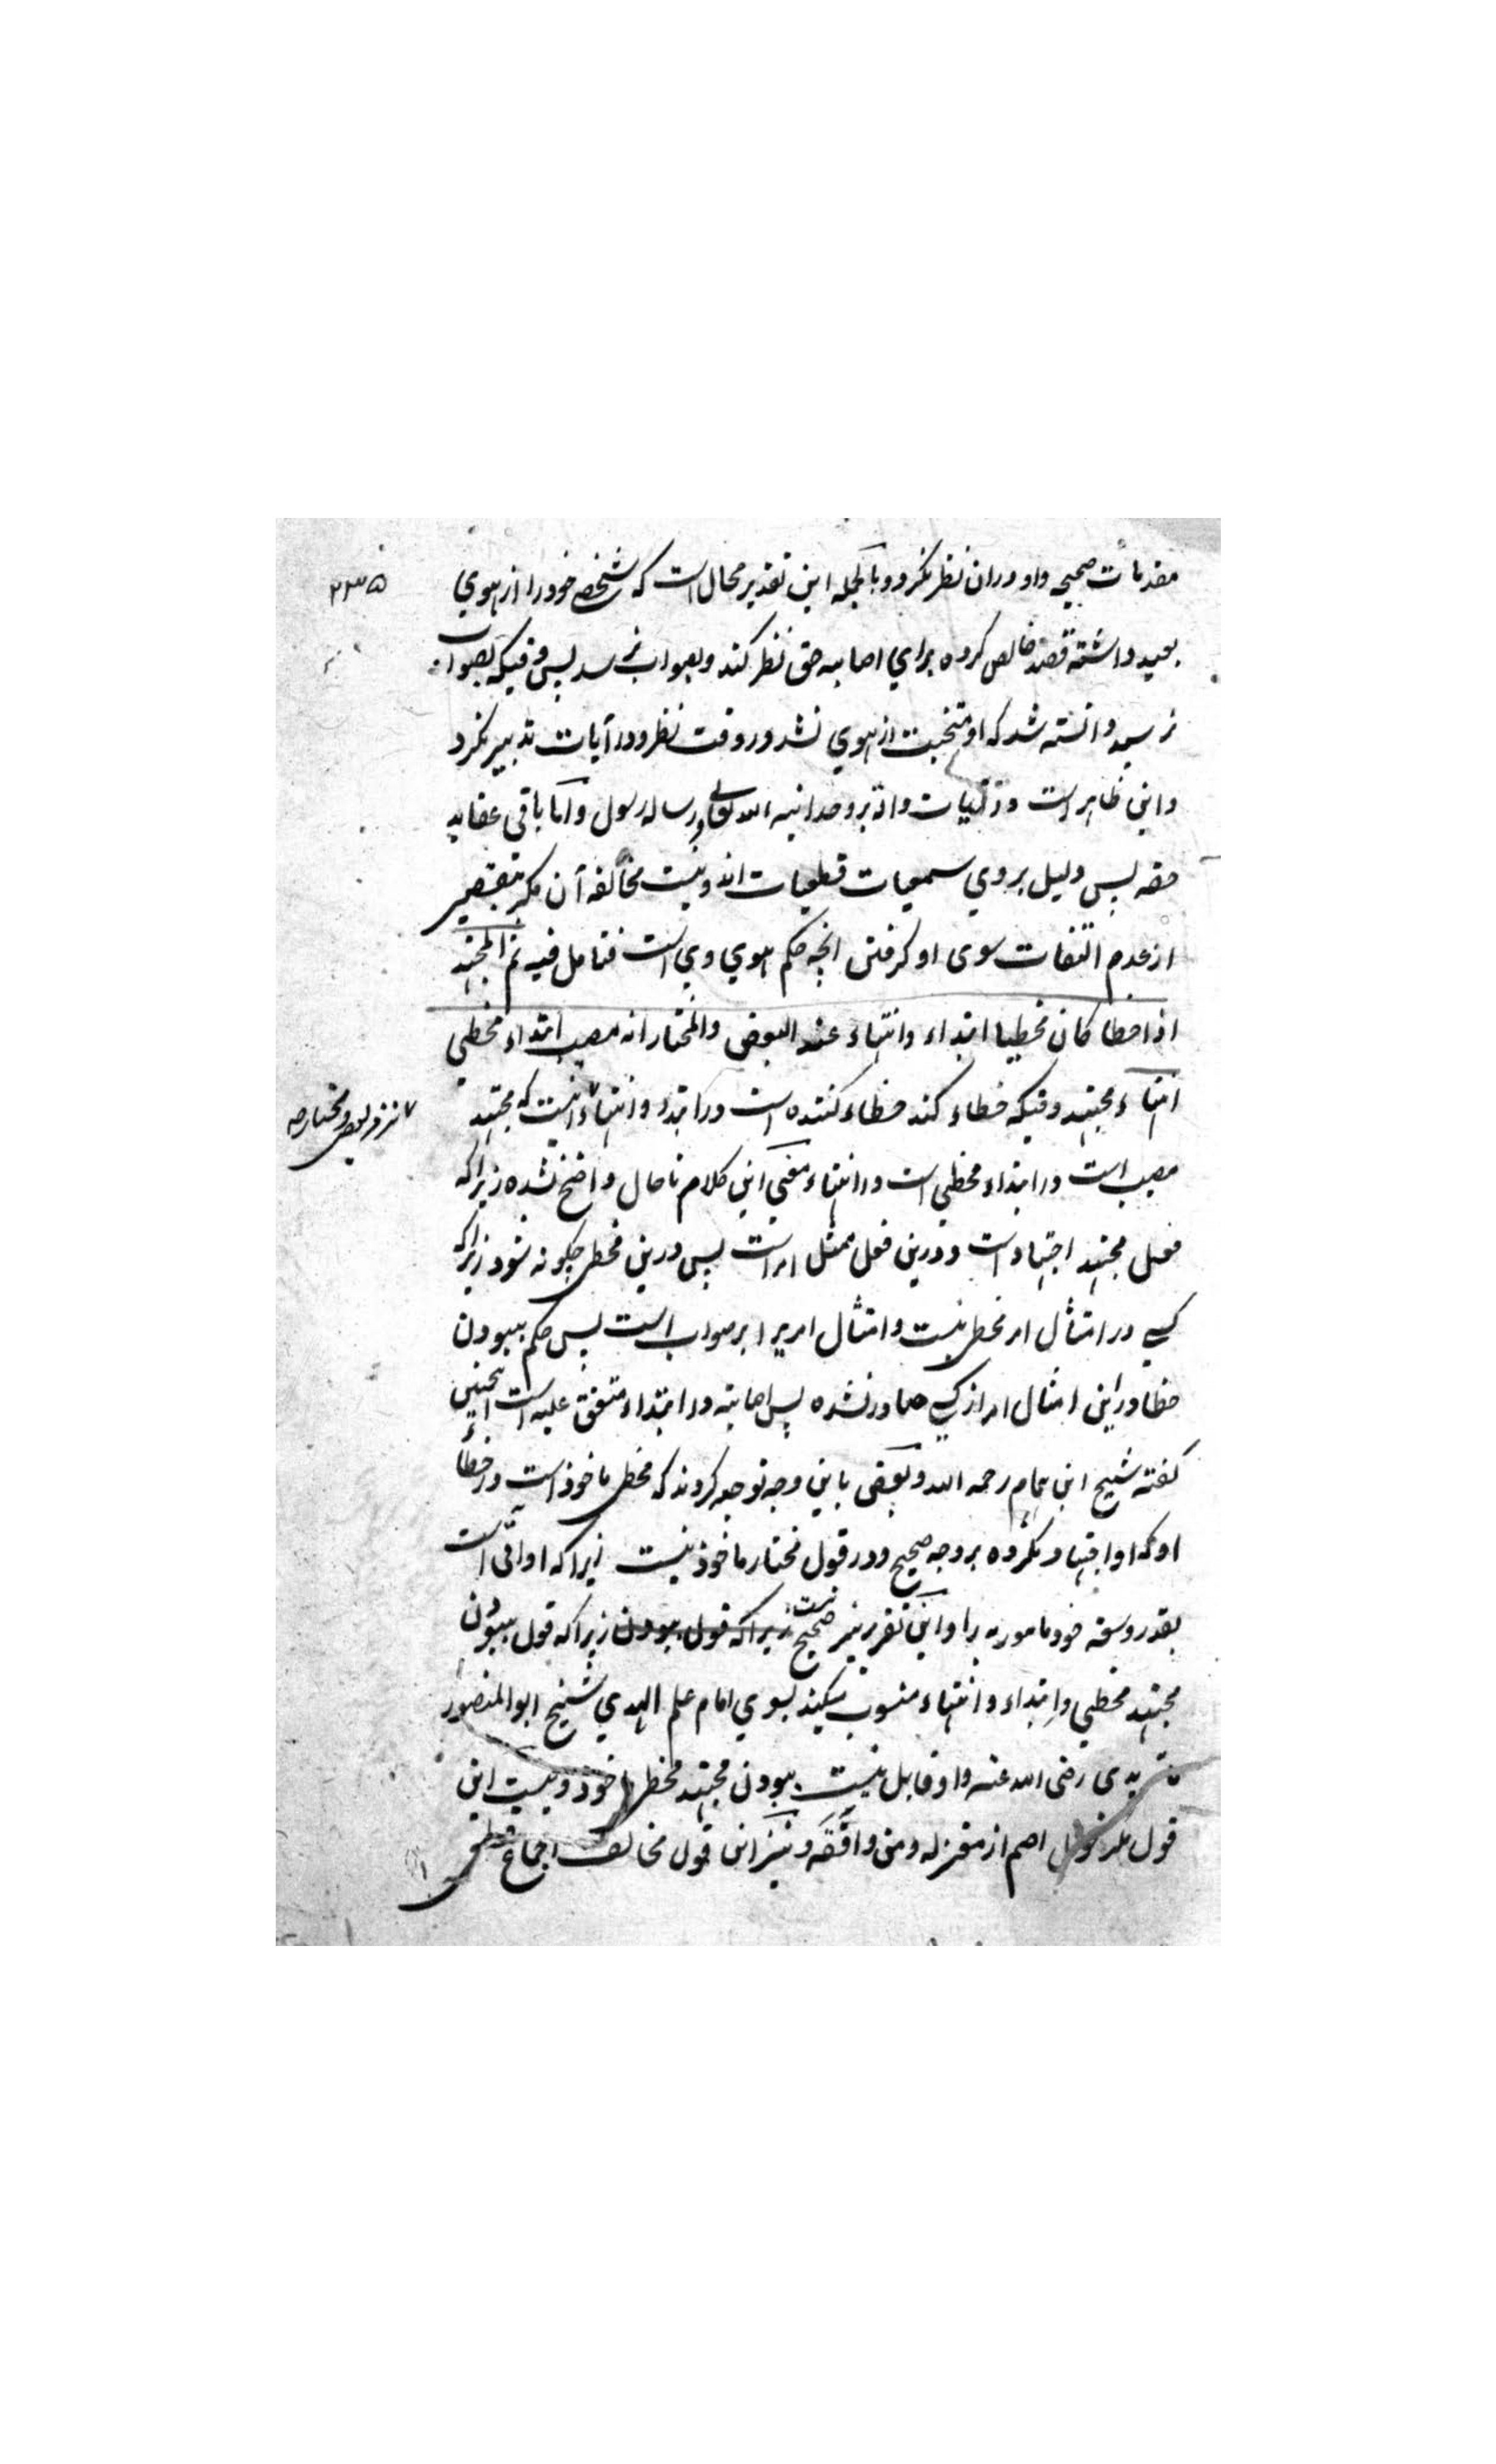 ۲۳۵
مقدمات صحیحه و او دران نظر نکرد و بالجمله این تقدیر محال است که شخص خود را از هوی
بعید داشته قصد خالص کرده برای اصابه حق نظر کند و بصواب نرسد پس وقتیکه بصواب
نرسید دانسته شد که او مجتنب از هوی نشد در وقت نظر و در آیات تدبیر نکرد
و این ظاهر است در عقلیات و اند بر وحدانیه الله تعالی و رساله رسول و اما باقی عقاید
حقه پس دلیل بر وی سمعیات قطعیات اند و نیست مخالفه آن مگر بتقصیر
از عدم التفات سوی او گرفتن انچه حکم هوی وی است فتامل فیه ثم المجتهد
اذا اخطا کان مخطیا ابتداء وانتهاء عند البعض والمختار انه مصیب ابتداء مخطی
انتهاء مجتهد وقتیکه خطاء کند خطاء کننده است در ابتداء و انتهاء اینست که مجتهد
۷ نزد بعض و مختار
مصیب است در ابتداء مخطی است در انتهاء معنی این کلام تا حال واضح نشده زیراکه
فعل مجتهد اجتهاد است و درین فعل ممتثل امر است پس درین مخطی چگونه شود زیراکه
کسی در امتثال امر مخطی نیست و امتثال امر بر صواب است پس حکم ببودن
خطا در این امتثال امر از کسی صادر نشده پس اصابته در ابتداء متفق علیه است اینچنین
گفته شیخ ابن همام رحمه الله و بعضی باین وجه توجیه کردند که مخطی ماخوذ است در خطاء
او که او اجتهاد نکرده بر وجه صحیح و در قول مختار ماخوذ نیست زیراکه او آتی است
بقدر وسعه خود مامور به را و این تقریر نیز صحیح نیست زیراکه قول ببودن زیراکه قول ببودن
مجتهد مخطی در ابتداء و انتهاء منسوب میکنند بسوی امام علم الهدی شیخ ابو المنصور
ماتریدی رضی الله عنه و او قابل نیست ببودن مجتهد مخطی ماخوذ و نیست این
قول مگر قول اصم از معتزله و من وافقه و نیز این قول مخالف اجماع قطعی